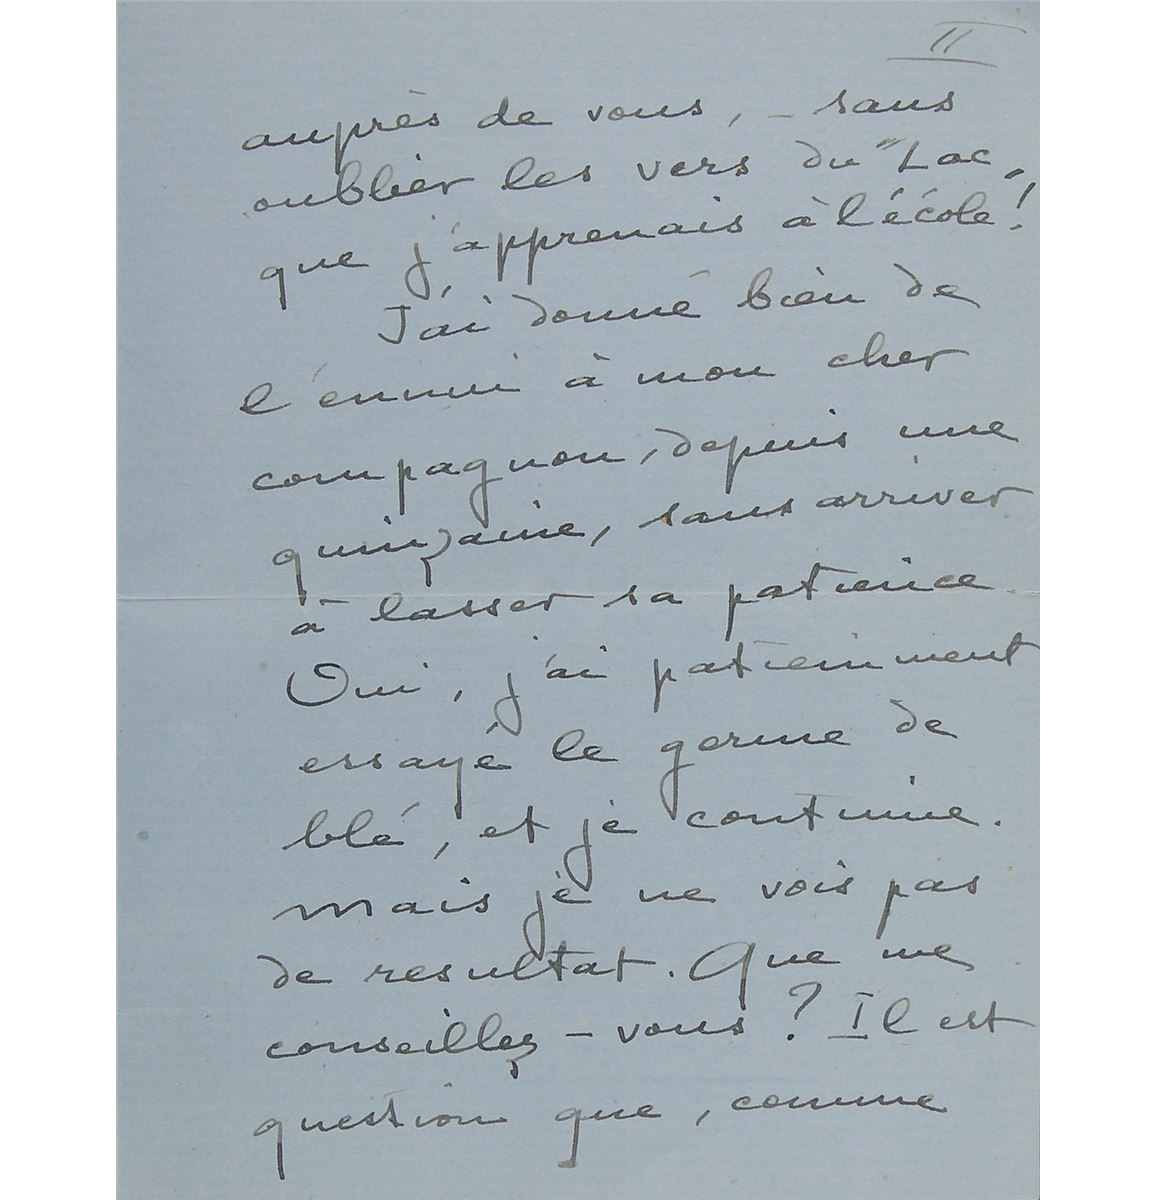 II
auprès de vous, – sans
oublier les vers du "Lac"
que j'apprenais à l'école!
J'ai donné bien de
l'ennui à mon cher
compagnon, depuis une
quinzaine, sans arriver
à lasser sa patience.
Oui, j'ai patiemment
essayé le germe de
blé, et je continue.
Mais je ne vois pas
de resultat. Que me
conseillez-vous? Il est
question que, comme